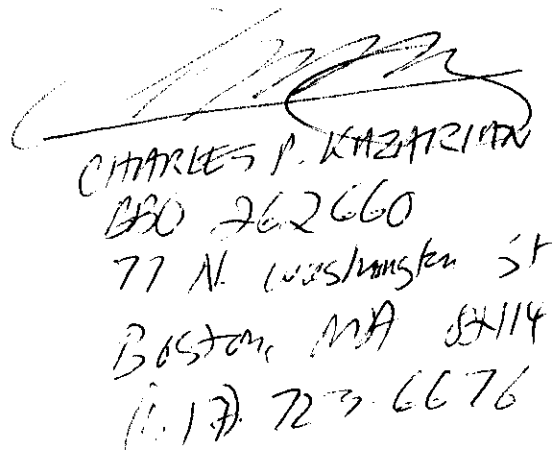 CHARLES P. KAZARIAN
BBO 262660
77 N. Washington St
Boston, MA 02114
(617) 723-6676